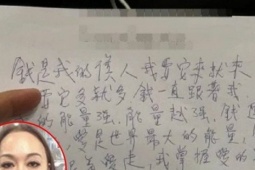 錢是我的僕人我要它來就來
要它多就多錢一直跟著我
的能量越強,錢
愛是世界最大的能量,
走,我掌握愛的